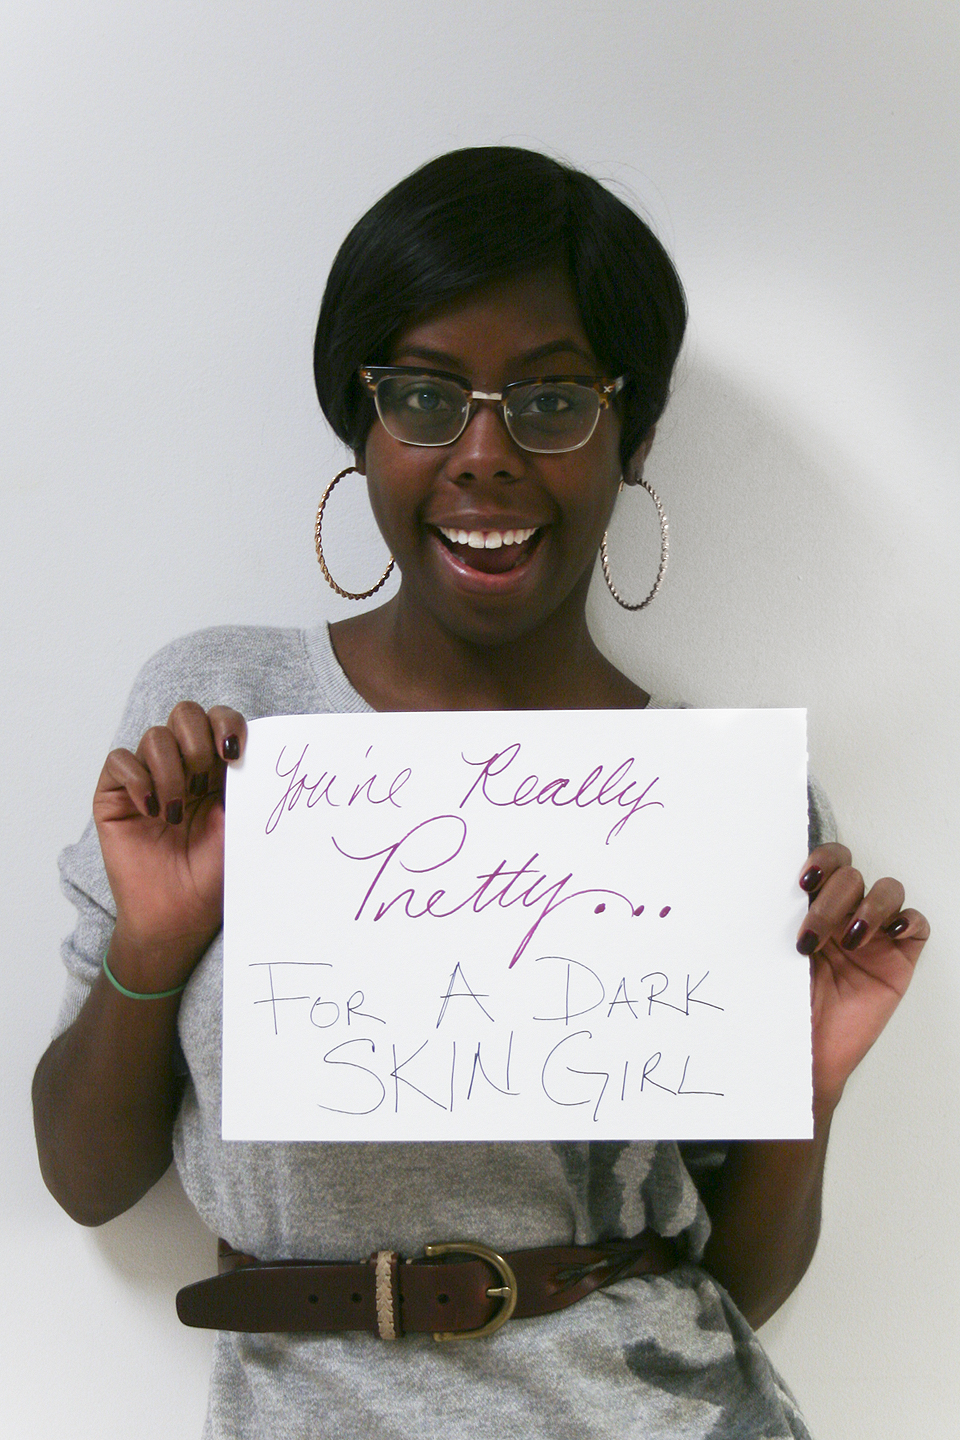 You're Really
Pretty...
FOR A DARK
SKIN GIRL